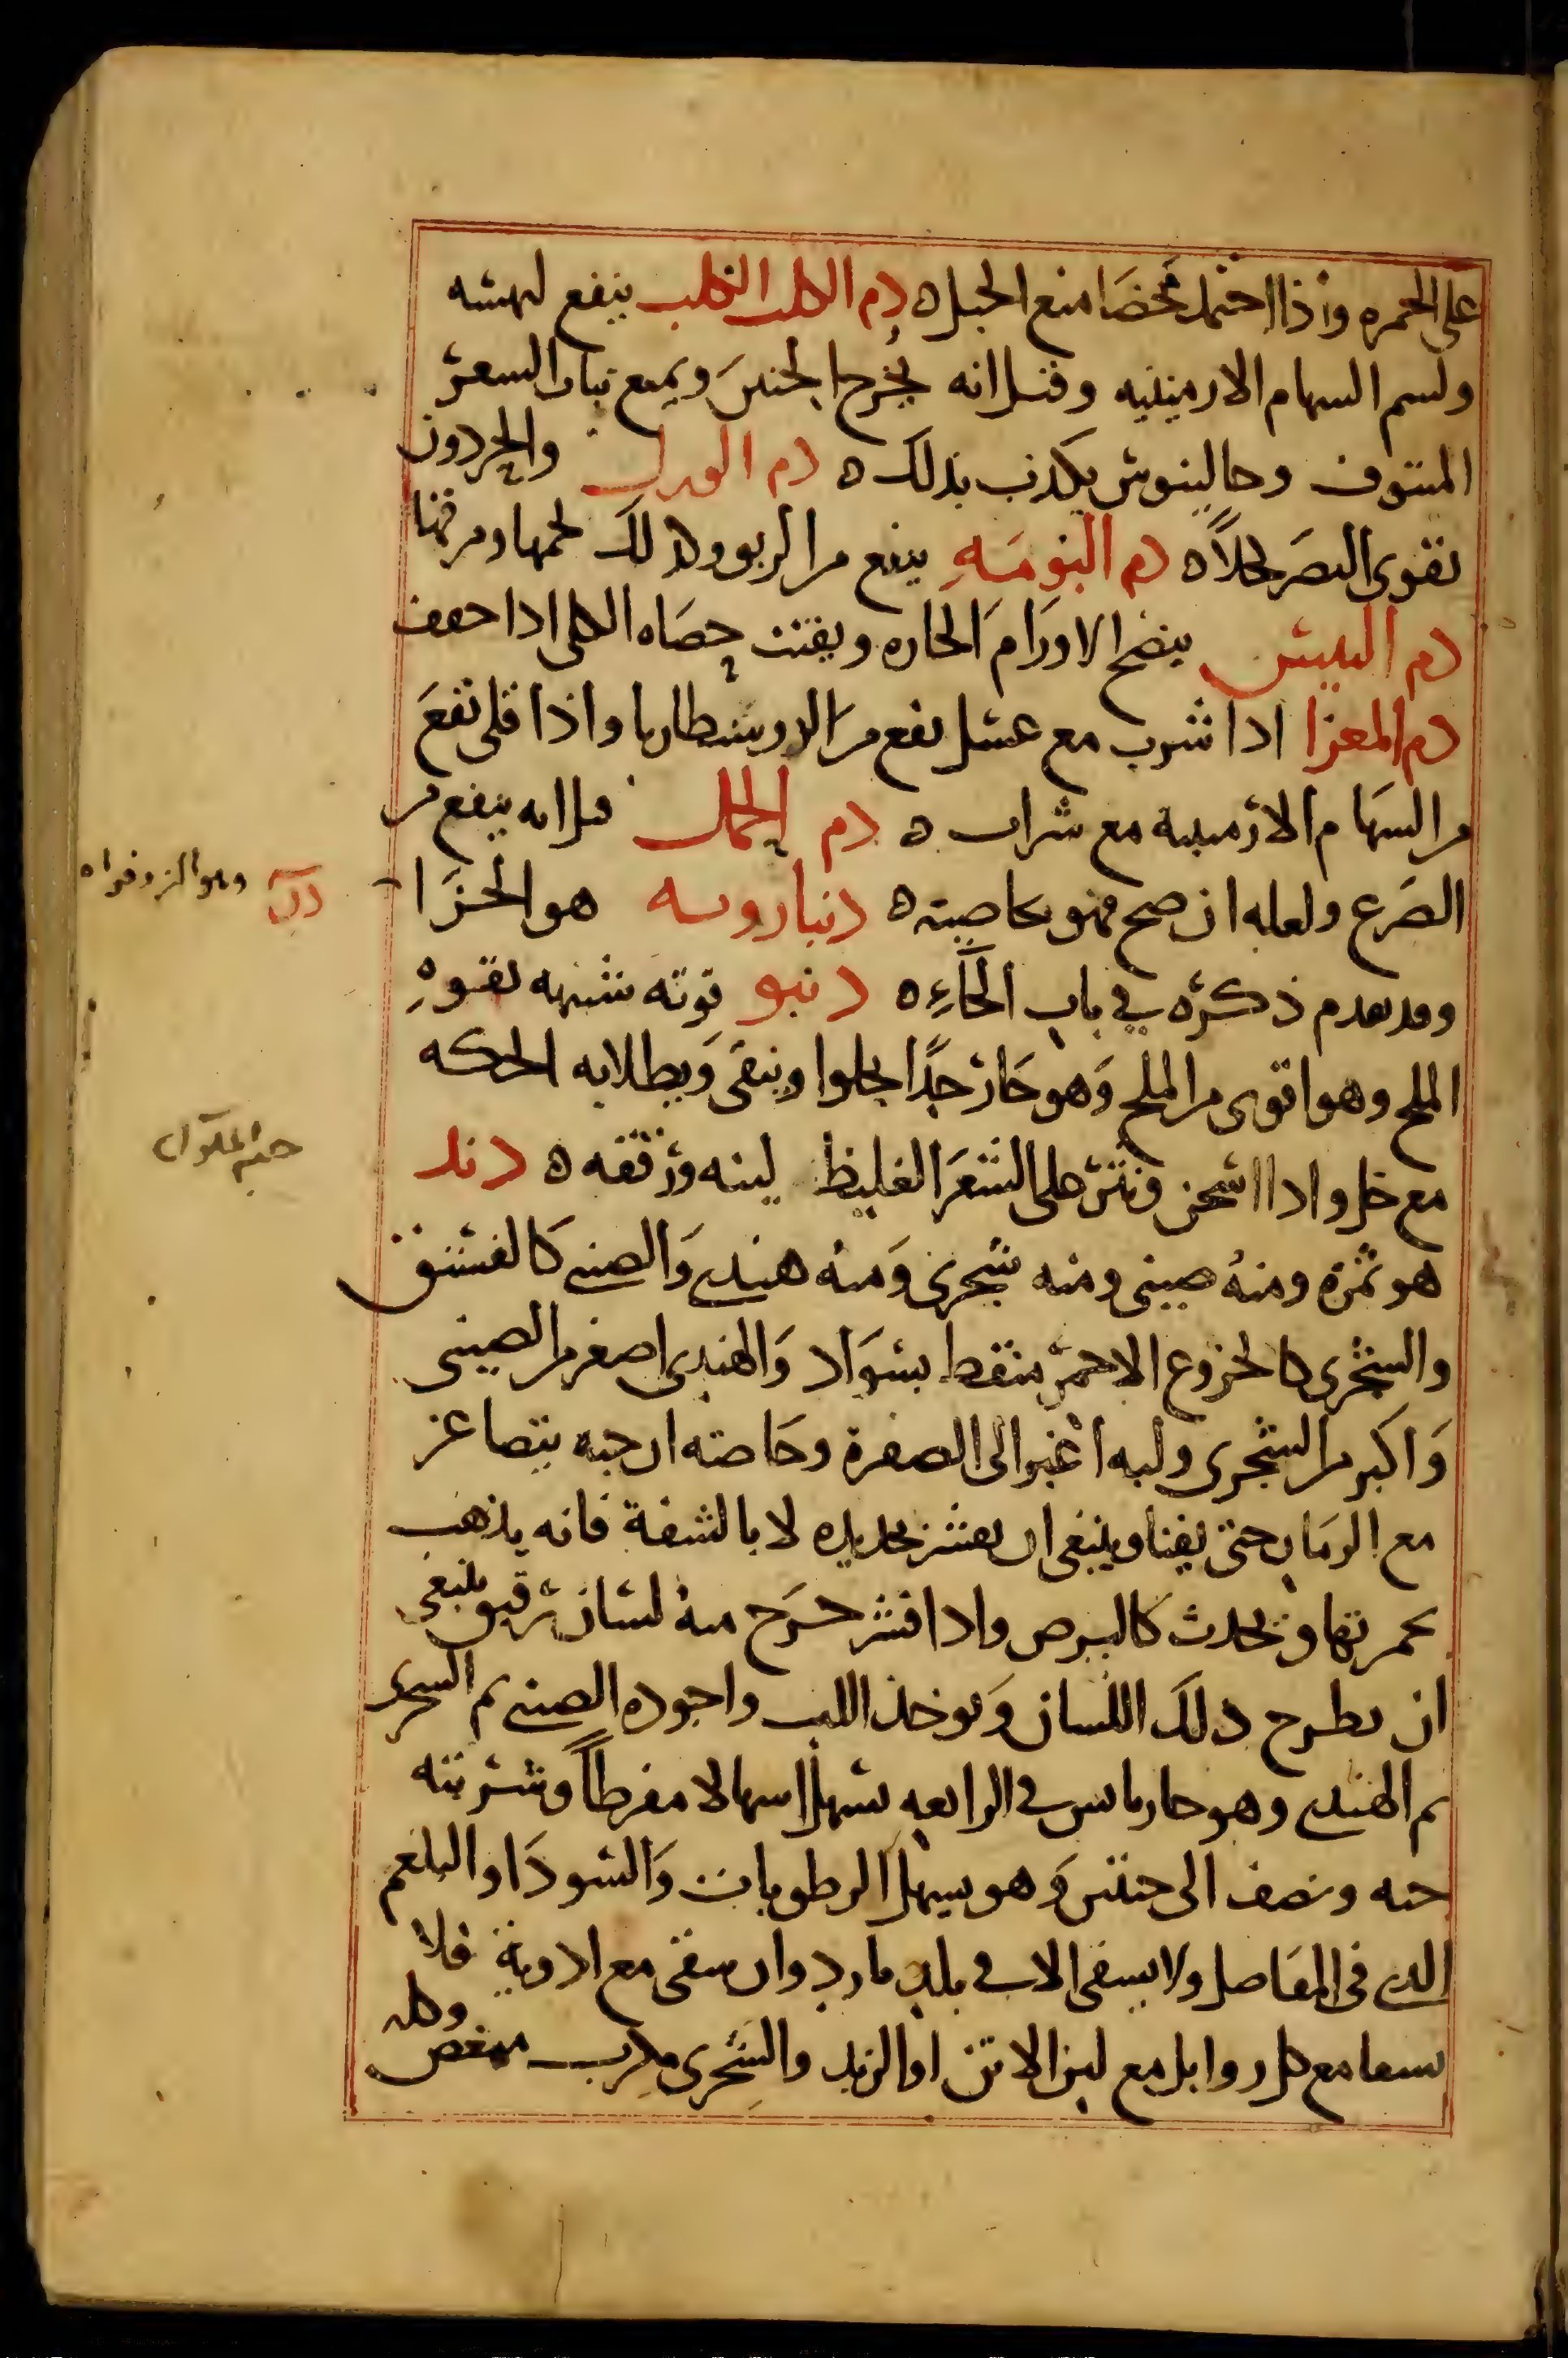 على الجمره واذا احتمل محضا منع الحبل ه دم الكلب الكلب ينفع لهشه
ولسم السهام الارمينيه وقيل انه يخرج الجنين ويمنع نبات السعر
المنتوف وجالينوش يكذب بذلك ه دم الورل والحردون
يقوى البصر كحلاً ه دم البومه ينفع من الربو وكذلك لحمها ومرقها
دم التيس ينضج الاورام الحاره ويفتت حصاه الكلى اذا جفف
دم المعزا اذا شرب مع عسل نفع من الدوسنطاريا واذا قلى نفع
من السهام الارمينية مع شراب ه دم الجمال قيل انه ينفع من
الصرع ولعله ان صح فهو بخاصيته ه دنبارويه هو الحزا
وقد تقدم ذكره في باب الحاء ه دنبو قوته شبيهه بقوه
الملح وهو اقوى من الملح وهو حار جدا يجلوا وينقى ويطلا به الحكه
مع خل واذا اسحن ونثر على الشعر الغليظ لينه ورققه ه دند
هو ثمرة ومنه صينى ومنه شجرى ومنه هندى والصينى كالفستق
والشجرى كالخروع الاحمر منقط بسواد والهندى اصغر من الصينى
واكبر من الشجرى ولبه اغبر الى الصفرة وخاصته ان حبه يتصاغر
مع الزمان حتى يفنا وينبغى ان يقشر بحديده لا بالشفة فانه يذهب
بحمرتها ويحدث كالبرص واذا قشر خرج منه لسان رقيق ينبغى
ان يطرح ذلك اللسان ويوخذ اللب واجوده الصينى ثم الشجرى
ثم الهندى وهو حار يابس في الرابعه يسهل اسهالا مفرطاً وشربته
حبه ونصف الى حبتين وهو يسهل الرطوبات والسودا والبلغم
الذى في المفاصل ولا يسقى الا في بلد بارد وان سقى مع ادوية فلا
يسقا مع كل دوا بل مع لبن الاتن او الزبد والشجرى مكرب ممغص وكله
دن وهو الزوفراه
حب الملوك